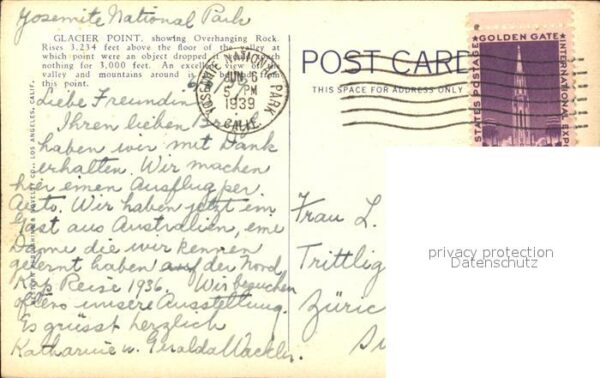 Yosemite National Park
GLACIER POINT, showing Overhanging Rock.
Rises 3,234 feet above the floor of the valley at
which point were an object dropped it would touch
nothing for 3,000 feet. An excellent view of the
valley and mountains around is obtained from
this point.
POST CARD
THIS SPACE FOR ADDRESS ONLY
YOSEMITE NATIONAL PARK
JUN 6
5 PM
1939
CALIF.
GOLDEN GATE
INTERNATIONAL EXP
STATES POSTAGE
Liebe Freundin!
Ihren lieben Brief
haben wir mit Dank
erhalten. Wir machen
hier einen Ausflug per
Auto. Wir haben jetzt ein
Gast aus Australien, eine
Dame die wir kennen
gelernt haben auf der Nord
Kap Reise 1936. Wir besuchen
öftens unsere Ausstellung.
Es grüsst herzlich
Katharine u. Giralda Wackler.
Frau L.
Trittlig
Züric
privacy protection
Datenschutz
CO., LOS ANGELES, CALIF.